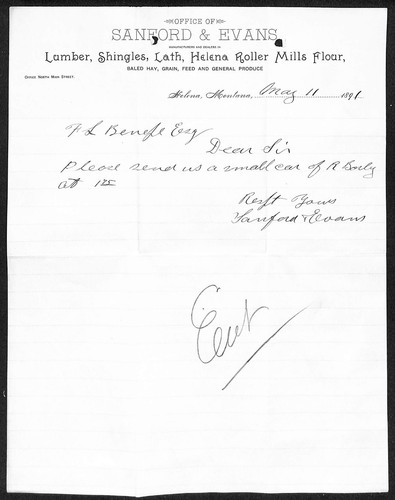 OFFICE OF
SANFORD & EVANS
MANUFACTURERS AND DEALERS IN
Lumber, Shingles, Lath, Helena Roller Mills Flour,
BALED HAY, GRAIN, FEED AND GENERAL PRODUCE
OFFICE NORTH MAIN STREET.
Helena, Montana, May 11 1891
F L Benepe Esq
Dear Sir
Please send us a small car of R Barly
at
Resft Yours
Sanford & Evans